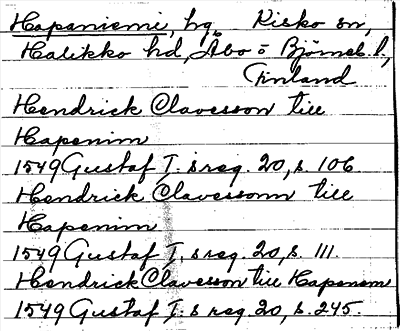 Hapaniemi, hg Kisko sn,
Halikko hd, Åbo o Björneb. l,
Finland
Hendrick Clavesson till
Hapenim
1549 Gustaf I. s reg. 20, s. 106
Hendrick Clavessonn till
Hapenim
1549 Gustaf I. s reg. 20, s. 111.
Hendrick Clavesson till Hapenem
1549 Gustaf I. s reg 20, s. 245.